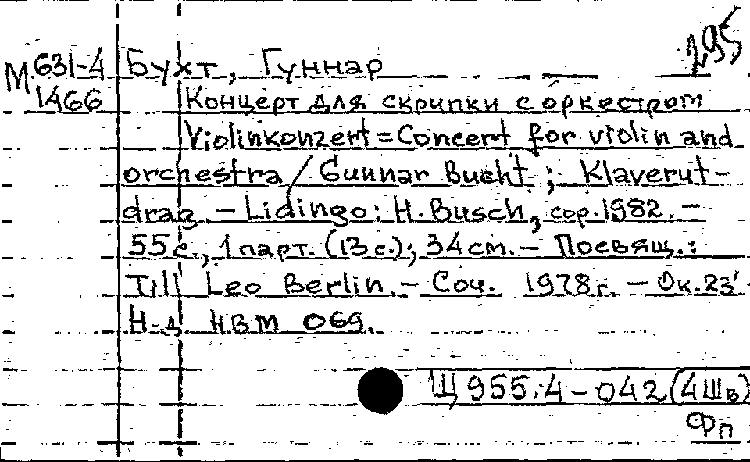 295
М 631-4 Бухт, Гуннар
1466 Концерт для скрипки с оркестром
Violinkonzert = Concert for violin and
orchestra / Gunnar Bucht ; Klaverut-
drag. – Lidingo: H. Busch, cop. 1982. –
55 с., 1 парт. (13 с.); 34 см. – Посвящ.:
Till Leo Berlin. – Соч. 1978 г. – Ок. 23'
Н.д. HBM 069.
Щ 955.4-042 (4Шв)
Фп